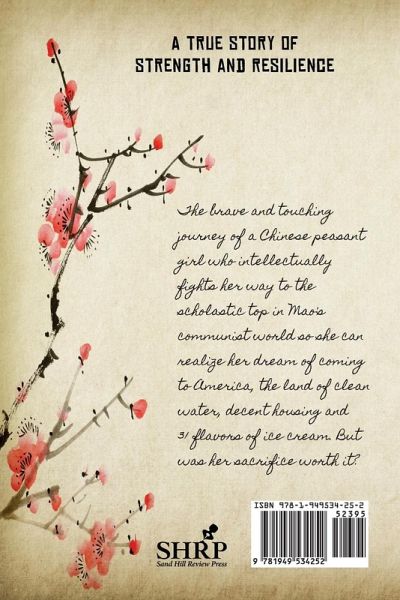 A TRUE STORY OF
STRENGTH AND RESILIENCE
The brave and touching
journey of a Chinese peasant
girl who intellectually
fights her way to the
scholastic top in Mao's
communist world so she can
realize her dream of coming
to America, the land of clean
water, decent housing and
31 flavors of ice cream. But
was her sacrifice worth it?
ISBN 978-1-949534-25-2
52395
9 781949 534252
SHRP
Sand Hill Review Press